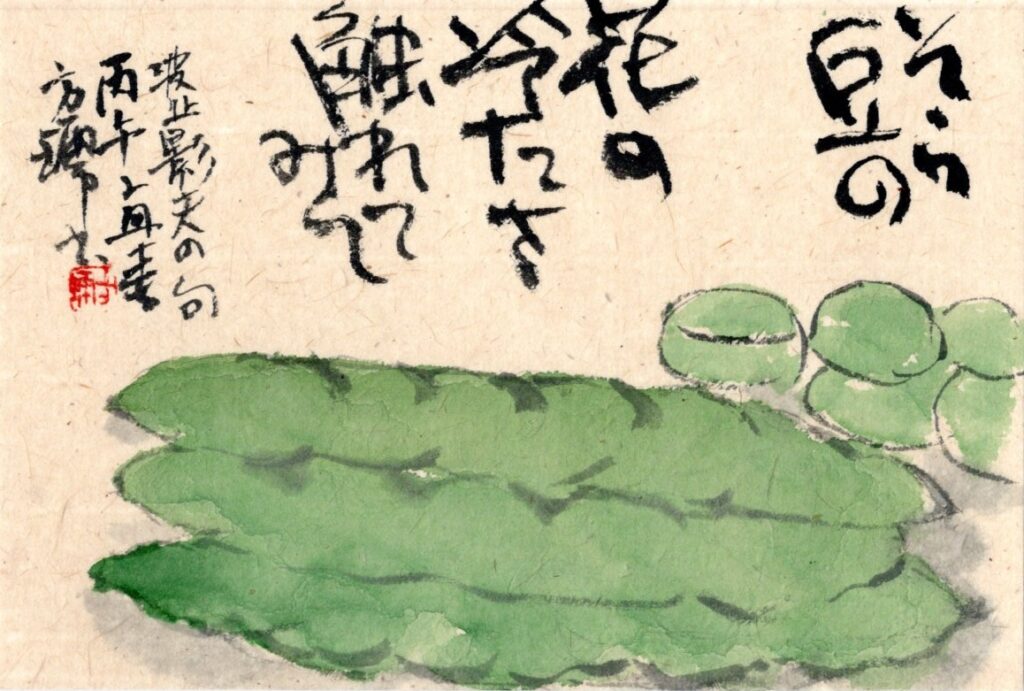 そら
豆の
花の
冷たさ
触れて
みて
波止影夫の句
丙午